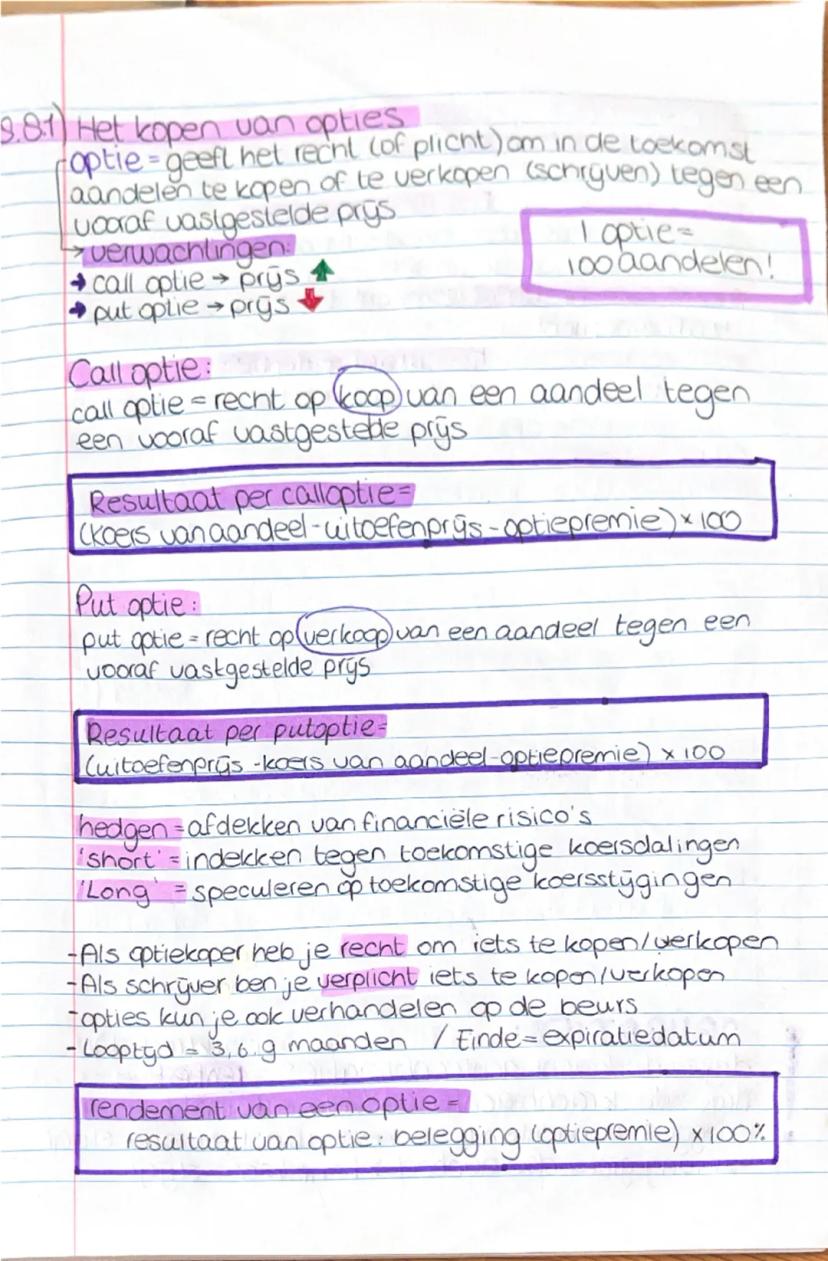 3.8.1) Het kopen van opties
optie = geeft het recht (of plicht) om in de toekomst
aandelen te kopen of te verkopen (schrijven) tegen een
vooraf vastgestelde prijs
→ verwachtingen:
→ call optie → prijs ↑
→ put optie → prijs ↓
1 optie =
100 aandelen!
Call optie:
call optie = recht op koop van een aandeel tegen
een vooraf vastgestelde prijs
Resultaat per calloptie =
(koers van aandeel - uitoefenprijs - optiepremie) × 100
Put optie:
put optie = recht op verkoop van een aandeel tegen een
vooraf vastgestelde prijs
Resultaat per putoptie =
(uitoefenprijs - koers van aandeel - optiepremie) × 100
hedgen = afdekken van financiële risico's
'short' = indekken tegen toekomstige koersdalingen
'Long' = speculeren op toekomstige koersstijgingen
- Als optiekoper heb je recht om iets te kopen/verkopen
- Als schrijver ben je verplicht iets te kopen/verkopen
- opties kun je ook verhandelen op de beurs
- Looptijd = 3, 6. 9 maanden / Einde = expiratiedatum
rendement van een optie =
resultaat van optie : belegging (optiepremie) × 100%